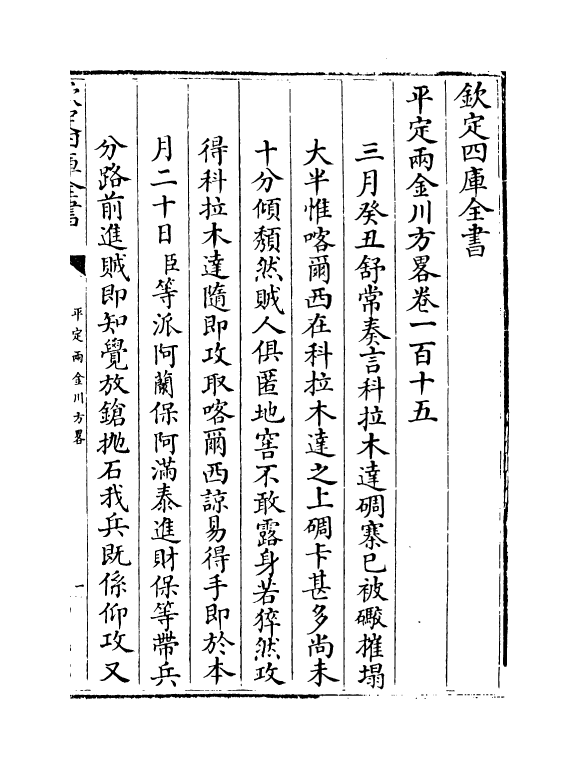 欽定四庫全書
平定兩金川方畧卷一百十五
三月癸丑舒常奏言科拉木達碉寨已被礮摧塌
大半惟喀爾西在科拉木達之上碉卡甚多尚未
十分傾頽然賊人俱匿地窖不敢露身若猝然攻
得科拉木達隨即攻取喀爾西諒易得手即於本
月二十日臣等派阿蘭保阿滿泰進財保等帶兵
分路前進賊即知覺放鎗拋石我兵既係仰攻又
欽定四庫全書
平定兩金川方畧
一